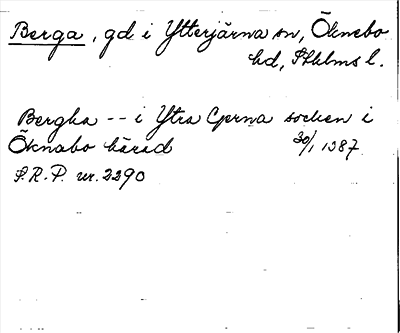 Berga, gd i Ytterjärna sn, Öknebo
hd, Sthlms l.
Bergha -- i Ytra Gerna socken i
Öknabo härad 30/1 1387
S.R.P. nr. 2290